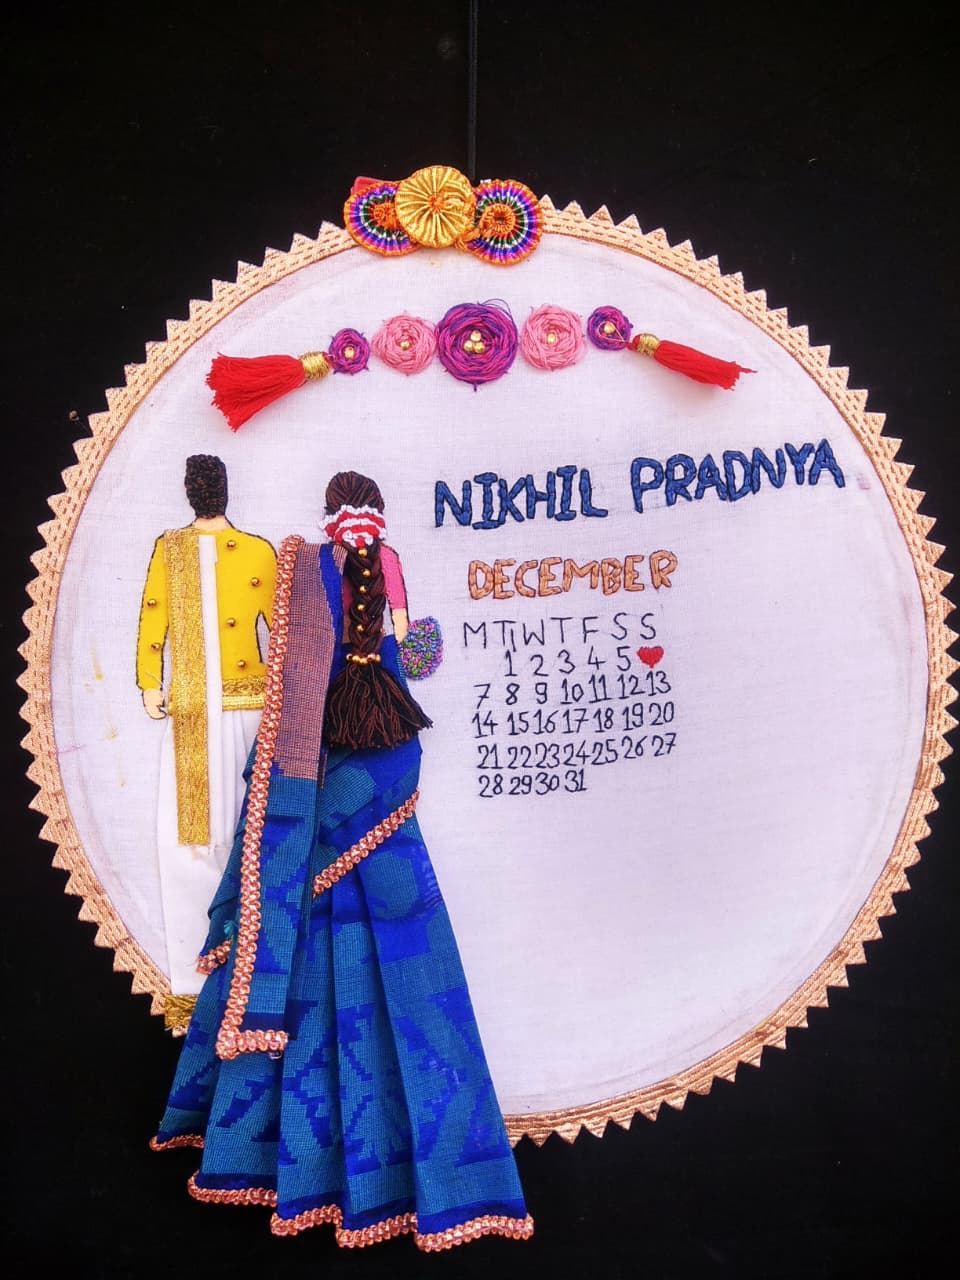 NIKHIL PRADNYA
DECEMBER
M T W T F S S
1 2 3 4 5 ♥
7 8 9 10 11 12 13
14 15 16 17 18 19 20
21 22 23 24 25 26 27
28 29 30 31